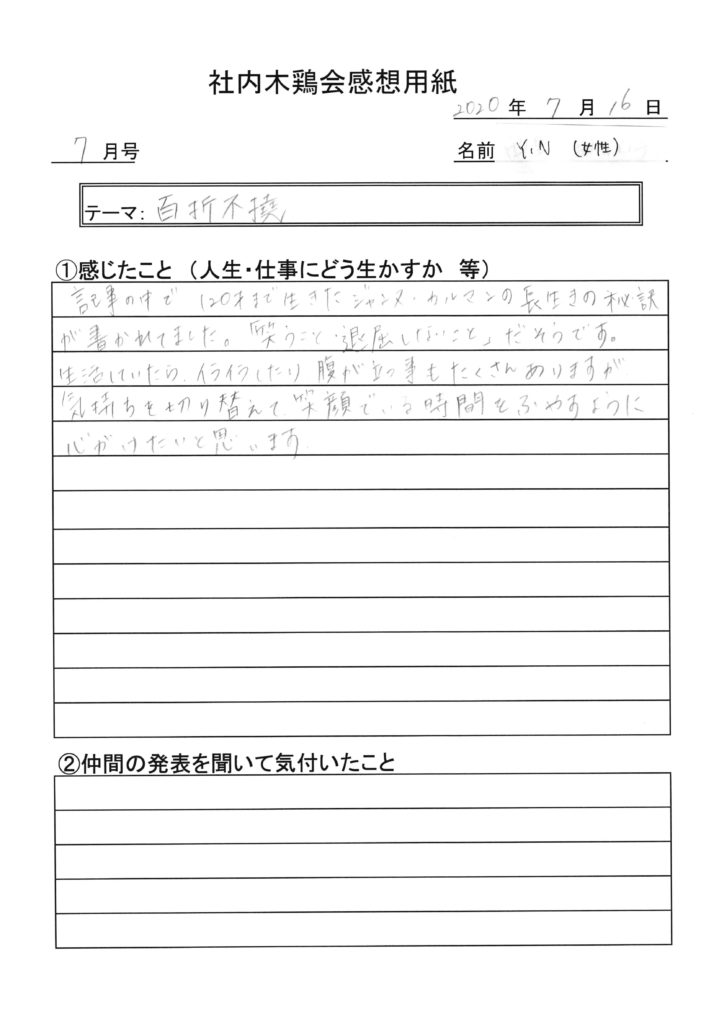 社内木鶏会感想用紙
2020 年 7 月 16 日
7 月号
名前 Y.N (女性)
テーマ: 百折不撓
①感じたこと （人生・仕事にどう生かすか 等）
記事の中で 120才まで生きたジャンヌ・カルマンの長生きの秘訣
が書かれてました。「笑うこと・退屈しないこと」だそうです。
生活していたら、イライラしたり 腹が立つ事もたくさんありますが
気持ちを切り替えて、笑顔でいる時間をふやすように
心がけたいと思います。
②仲間の発表を聞いて気付いたこと